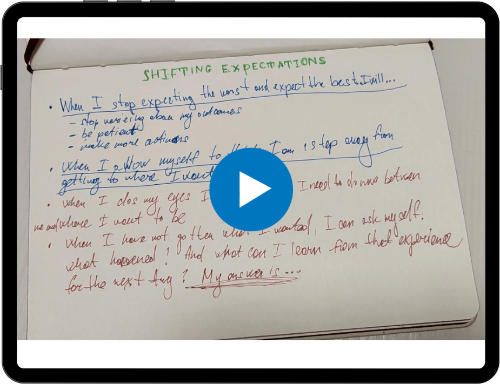 SHIFTING EXPECTATIONS
• When I stop expecting the worst and expect the best I will...
- stop worrying about my outcomes
- be patient
- make more actions
• When I allow myself to I am 1 step away from
getting to where I want
• When I clos my eyes I I need to do now between
me and where I want to be
• When I have not gotten what I wanted, I can ask myself.
what happened? And what can I learn from that experience
for the next time? My answer is...